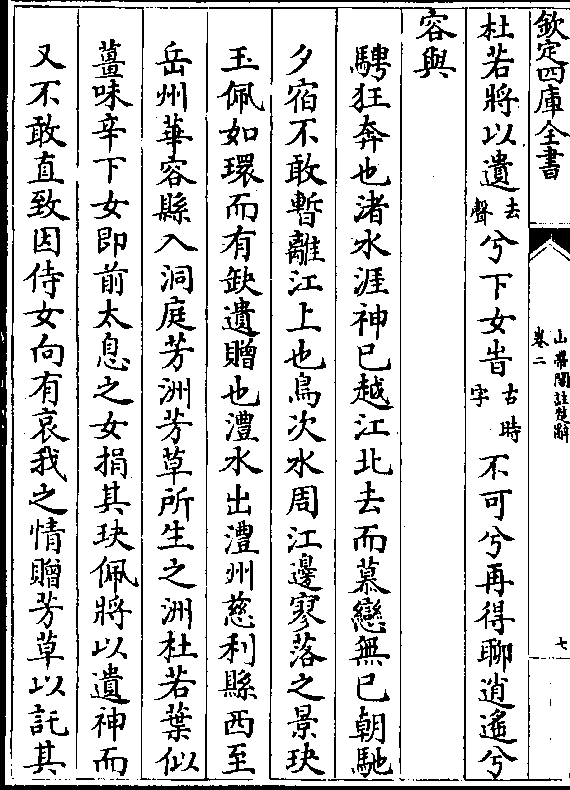 欽定四庫全書
山帶閣註楚辭
卷二
七
杜若將以遺去聲兮下女旹古時字不可兮再得聊逍遙兮
容與
騁狂奔也渚水涯神已越江北去而慕戀無已朝馳
夕宿不敢暫離江上也鳥次水周江邊寥落之景玦
玉佩如環而有缺遺贈也澧水出澧州慈利縣西至
岳州華容縣入洞庭芳洲芳草所生之洲杜若葉似
薑味辛下女即前太息之女捐其玦佩將以遺神而
又不敢直致因侍女向有哀我之情贈芳草以託其